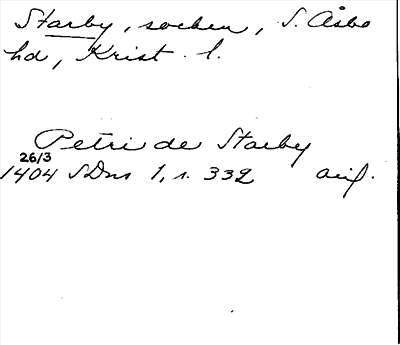 Starby, socken, S. Åsbo
hd, Krist. l.
Petri de Starby
26/3
1404 SDns 1, s. 332 avs.